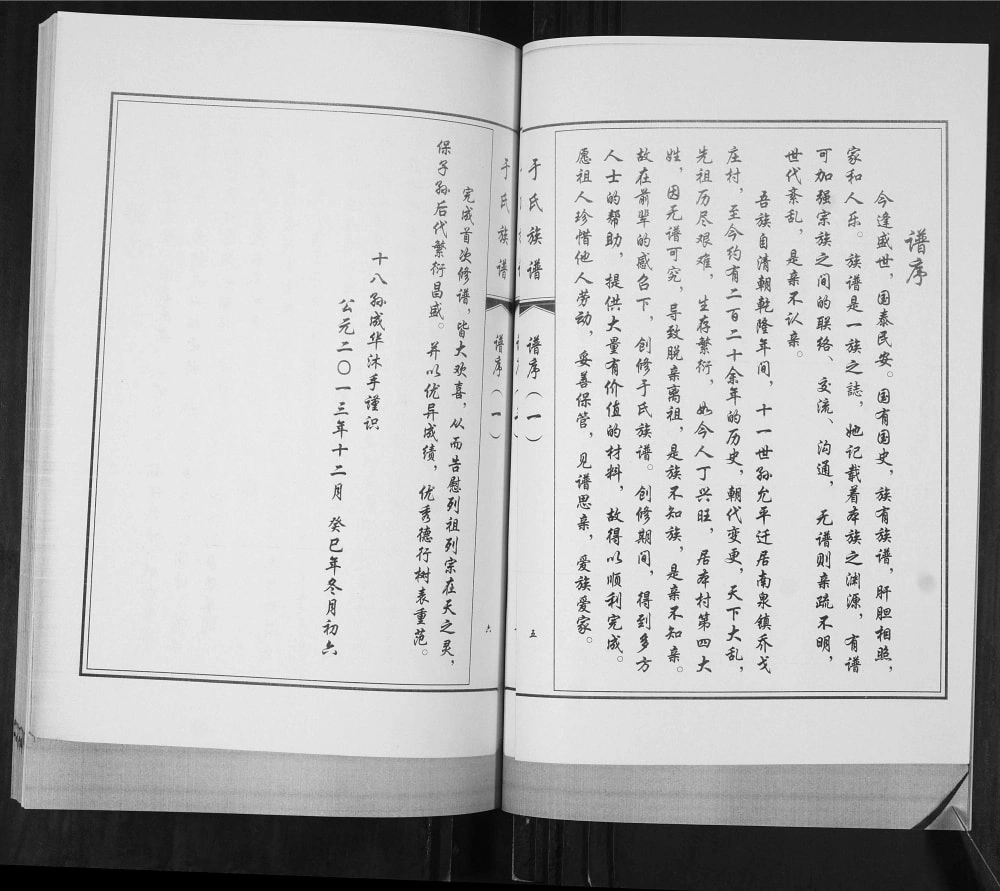 谱序
今逢盛世，国泰民安。国有国史，族有族谱，肝胆相照，
家和人乐。族谱是一族之誌，她记载着本族之渊源，有谱
可加强宗族之间的联络、交流、沟通，无谱则亲疏不明，
世代紊乱，是亲不认亲。
吾族自清朝乾隆年间，十一世孙允平迁居南泉镇乔戈
庄村，至今约有二百二十余年的历史，朝代变更，天下大乱，
先祖历尽艰难，生存繁衍，如今人丁兴旺，居本村第四大
姓，因无谱可究，导致脱亲离祖，是族不知族，是亲不知亲。
故在前辈的感召下，创修于氏族谱。创修期间，得到多方
人士的帮助，提供大量有价值的材料，故得以顺利完成。
愿祖人珍惜他人劳动，妥善保管，见谱思亲，爱族爱家。
于氏族谱
谱序（一）
五
于氏族谱
谱序（一）
六
完成首次修谱，皆大欢喜，从而告慰列祖列宗在天之灵，
保子孙后代繁衍昌盛。并以优异成绩，优秀德行树表重范。
十八孙成华沐手谨识
公元二〇一三年十二月 癸巳年冬月初六